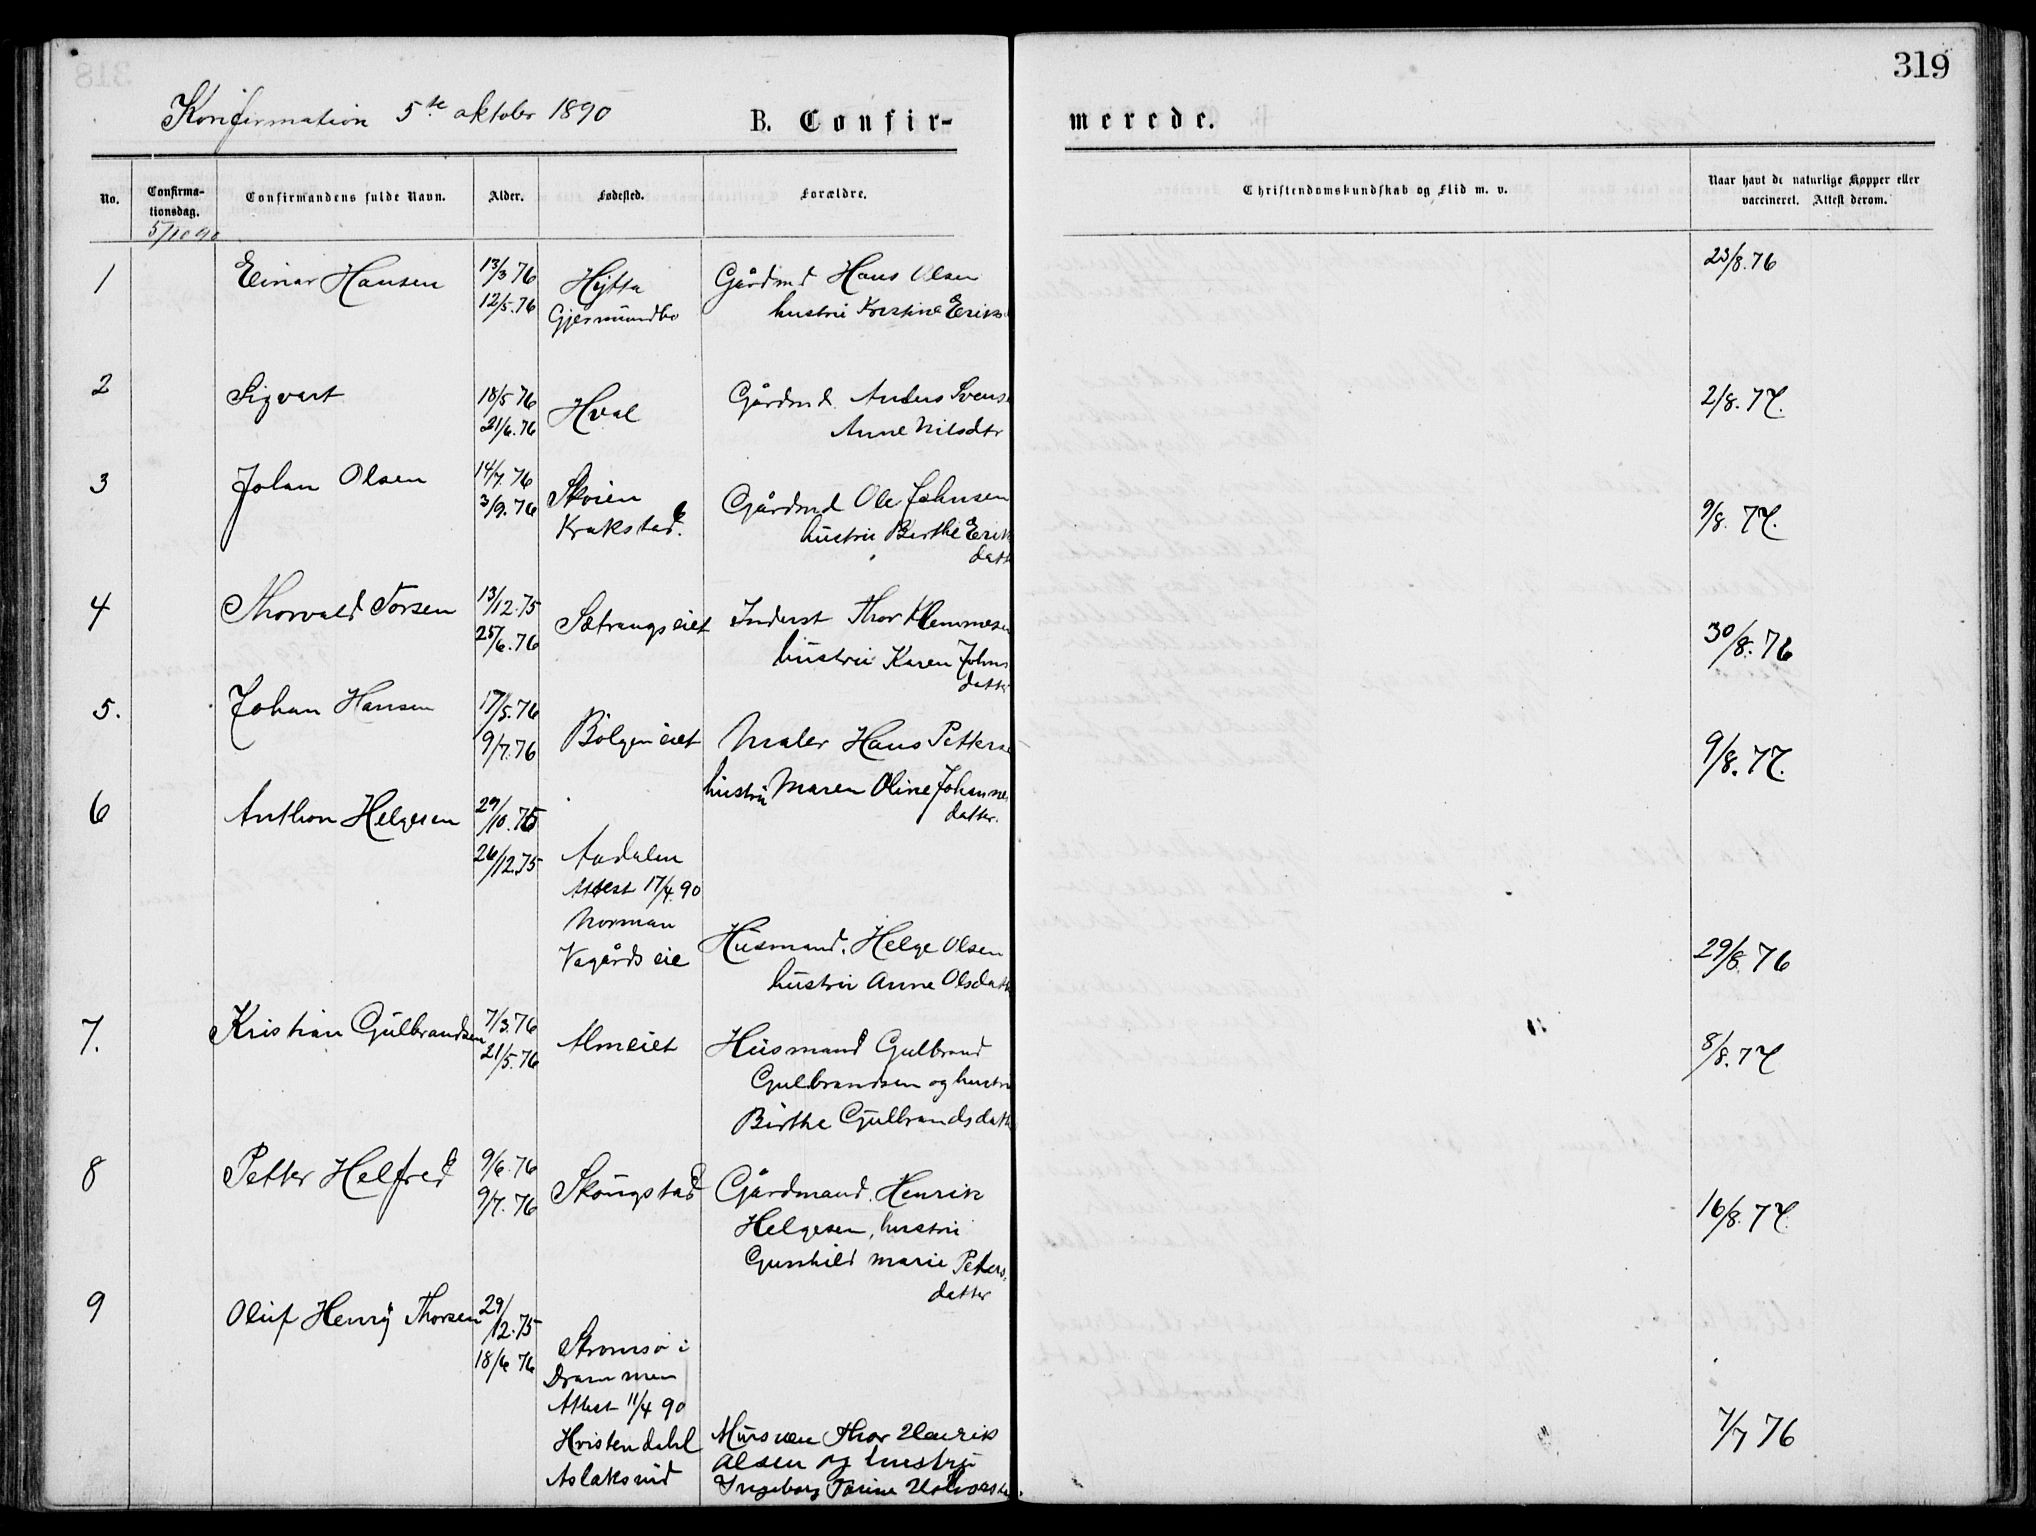 319
Konfirmation 5te oktober 1890
B. Confir-
merede.
No.
Confirma-
tionsdag.
Confirmandens fulde Navn.
Alder.
Fødested.
Forældre.
Christendomskundskab og Flid m. v.
Naar havt de naturlige Kopper eller
vaccineret. Attest derom.
5/10 90
1 Einar Hansen 13/3 76 Hytta Gårdmd Hans Olsen 23/8.76
12/5.76 Gjermundbo hustru Kristine Eriks
2 Sigvart 18/5 76 Hval Gårdmd. Anders Svens 2/8.77.
21/6.76 Anne Nilsdtr
3 Johan Olsen 14/7.76 Skoien Gårdmd Ole Johnsen 9/8.77.
3/9.76 Krakstad. hustru Birthe Erik
datt
4 Thorvald Torsen 13/12.75 Sætrangs eiet Inderst Thor Klemmesen 30/8.76
25/6.76 hustru Karen Johns
datter
5. Johan Hansen 17/5.76 Bølgen eiet Maler Hans Petterse 9/8.77.
9/7.76
hustru Maren Oline Johannes
datter.
6 Anthon Helgesen 29/10.75
26/12.75 Aadalen
Attest 17/4.90
Norman
Vagårds eie Husmand. Helge Olsen 29/8.76
hustru Anne Olsdatt
7. Kristian Gulbrandsen 7/3.76 Almeiet Husmand Gulbrand 8/8.77
21/5.76 Gulbrandsen og hustru
Birthe Gulbrandsdatt
8 Petter Helfred 9/6.76 Skougstad Gårdmand. Henrik 16/8.77.
9/7.76 Helgesen, hustru
Gunhild Marie Peters.
datter
9 Oluf Henry Thorsen 29/12.75
18/6 76 Stromsø i
Drammen
Attest 11/4 90
Hvistendahl Thor Henrik 7/7 76
Olsen og hustru
Ingeborg